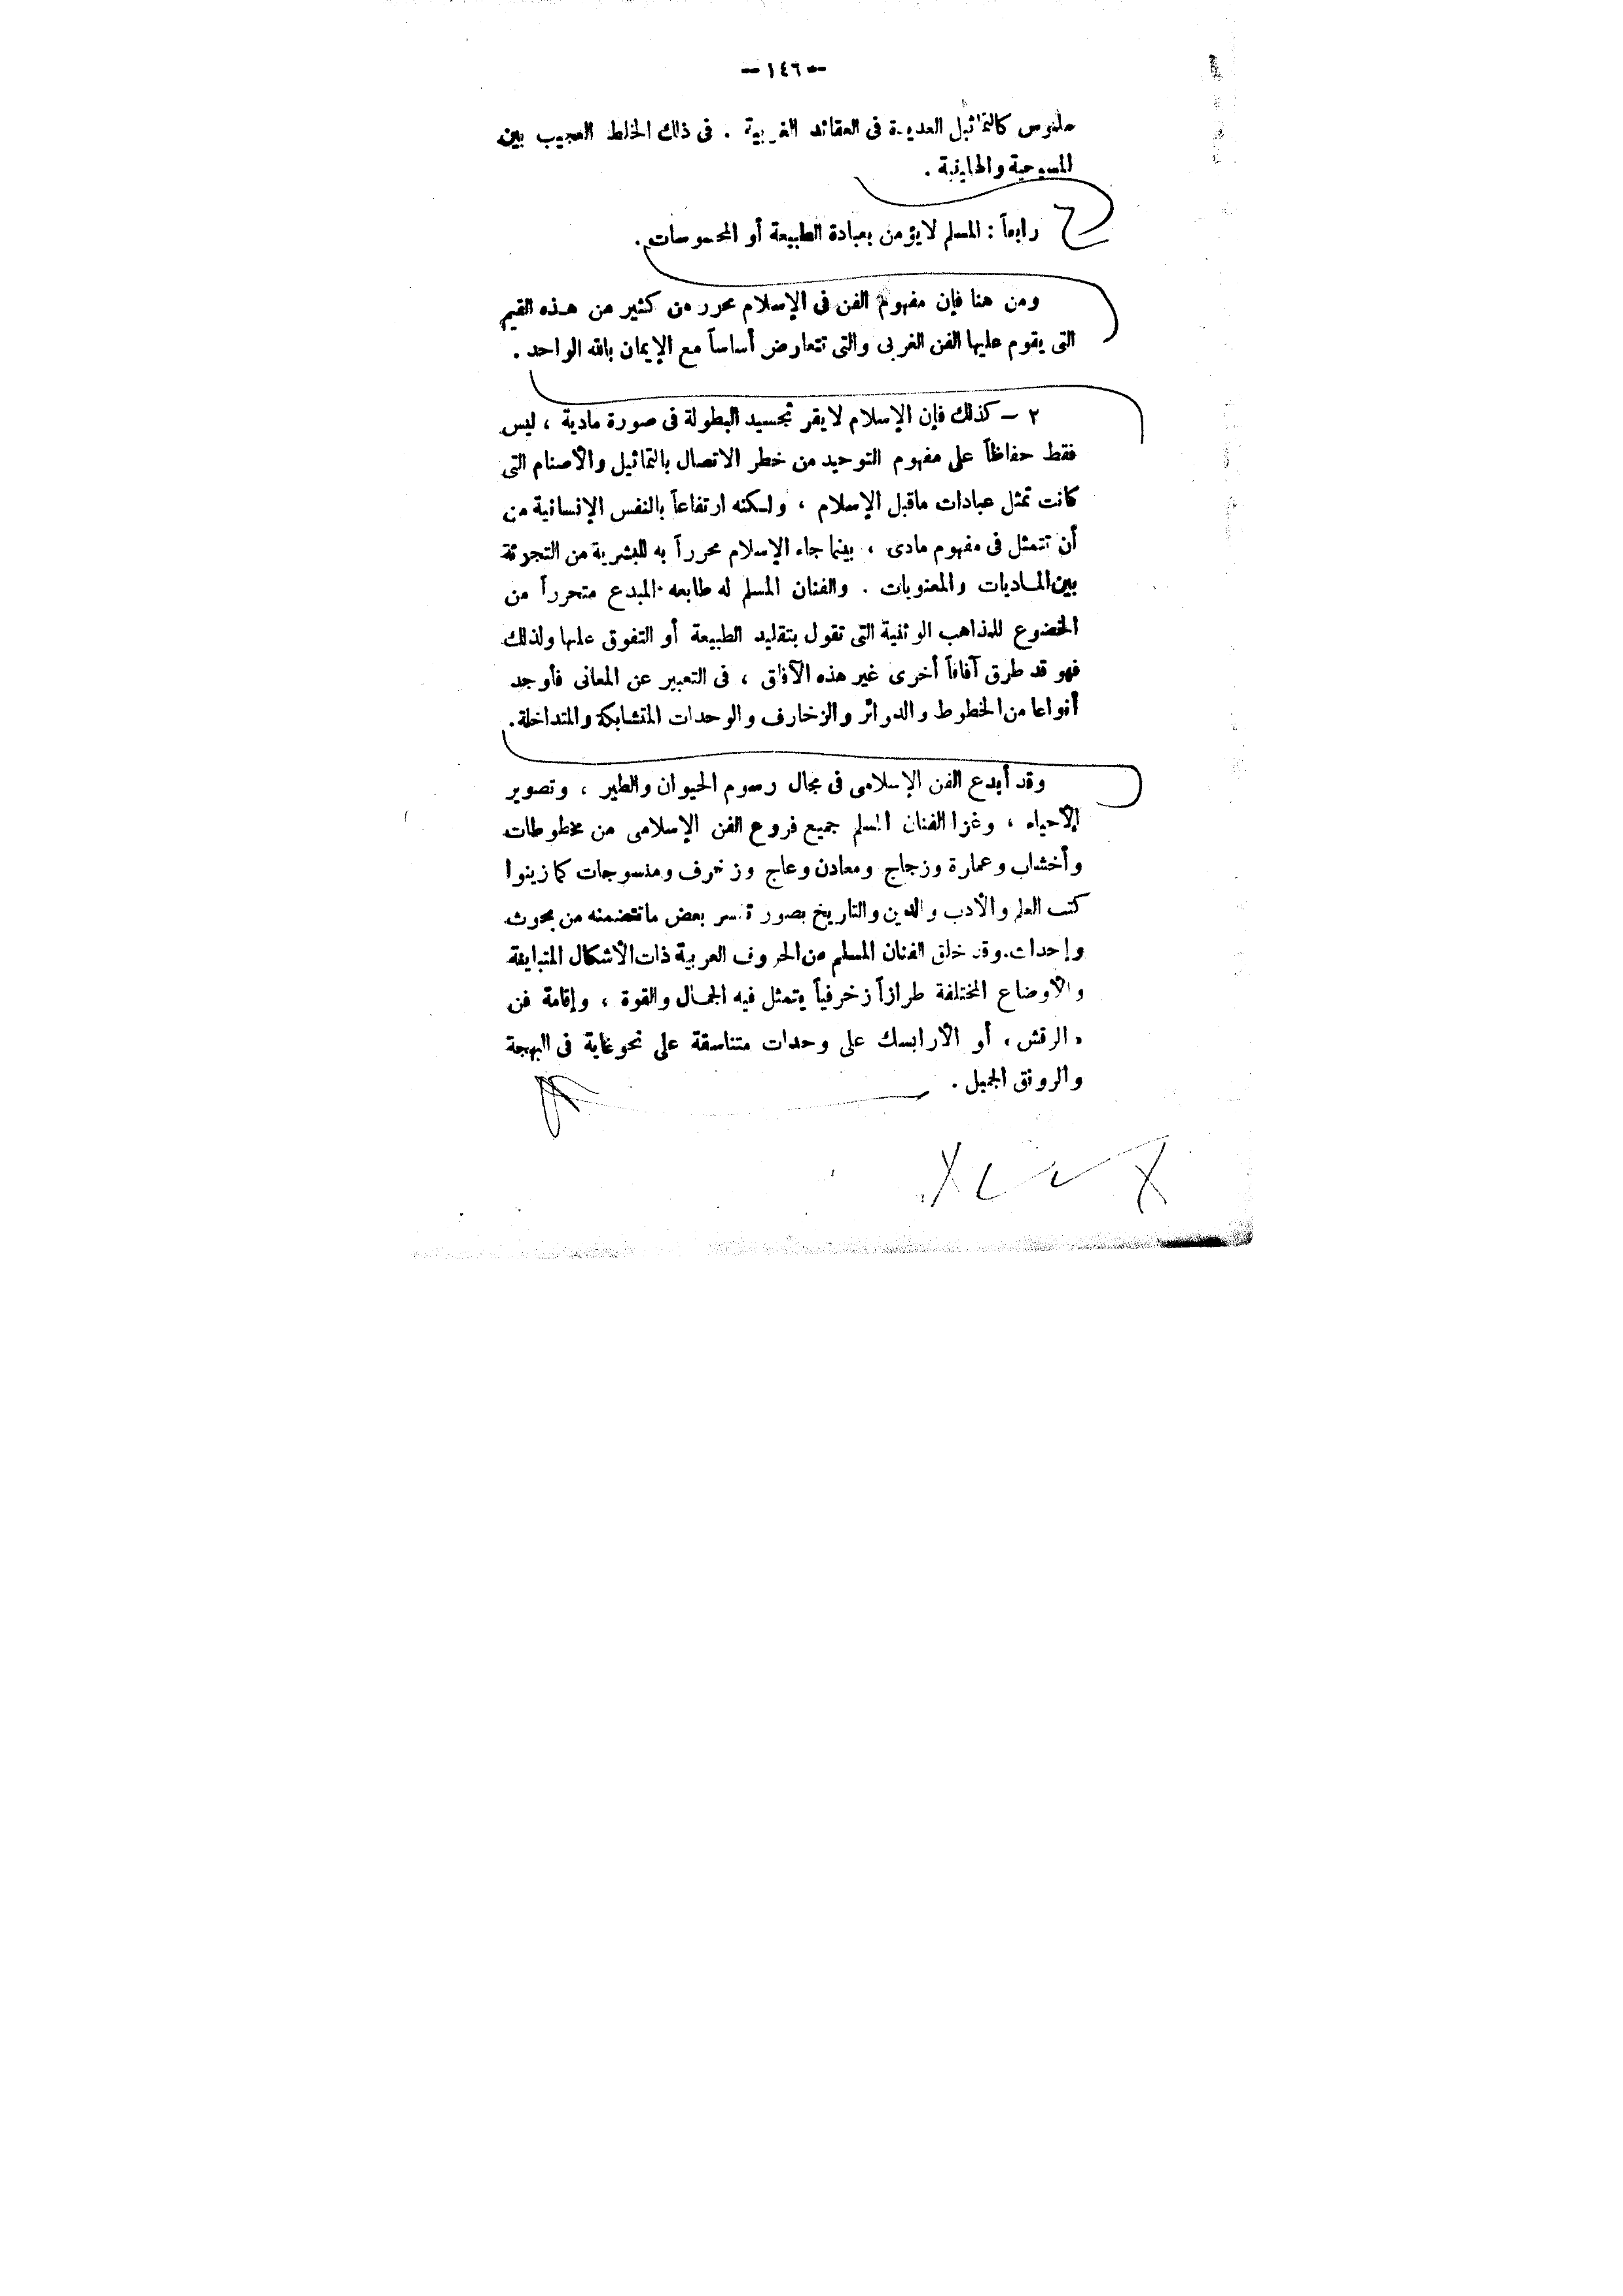 — ١٤٦ —
ملموس كالتماثيل العديدة فى العقائد الغربية . فى ذلك الخلط العجيب بين
المسيحية والهلينية .
رابعاً : المسلم لا يؤمن بعبادة الطبيعة أو المحسوسات .
ومن هنا فإن مفهوم الفن فى الإسلام محرر من كثير من هذه القيم
التى يقوم عليها الفن الغربى والتى تتعارض أساساً مع الإيمان بالله الواحد .
٢ – كذلك فإن الإسلام لا يقر تجسيد البطولة فى صورة مادية ، ليس
فقط حفاظاً على مفهوم التوحيد من خطر الاتصال بالتماثيل والأصنام التى
كانت تمثل عبادات ماقبل الإسلام ، ولكنه ارتفاعاً بالنفس الإنسانية من
أن تتمثل فى مفهوم مادى ، بينما جاء الإسلام محرراً به للبشرية من التجزئة
بين الماديات والمعنويات . والفنان المسلم له طابعه المبدع متحرراً من
الخضوع للمذاهب الوثنية التى تقول بتقليد الطبيعة أو التفوق عليها ولذلك
فهو قد طرق آفاقاً أخرى غير هذه الآفاق ، فى التعبير عن المعانى فأوجد
أنواعا من الخطوط والدوائر والزخارف والوحدات المتشابكة والمتداخلة .
وقد أبدع الفن الإسلامى فى مجال رسوم الحيوان والطير ، وتصوير
الأحياء ، وغزا الفنان المسلم جميع فروع الفن الإسلامى من مخطوطات
وأخشاب وعمارة وزجاج ومعادن وعاج وزخرف ومنسوجات كما زينوا
كتب العلم والأدب والدين والتاريخ بصور تفسر بعض ماتتضمنه من بحوث
وإحداث . وقد خلق الفنان المسلم من الحروف العربية ذات الأشكال المتباينة
والأوضاع المختلفة طرازاً زخرفياً يتمثل فيه الجمال والقوة ، وإقامة فن
« الرقش » أو الأرابسك على وحدات متناسقة على نحو غاية فى البهجة
والرونق الجميل .